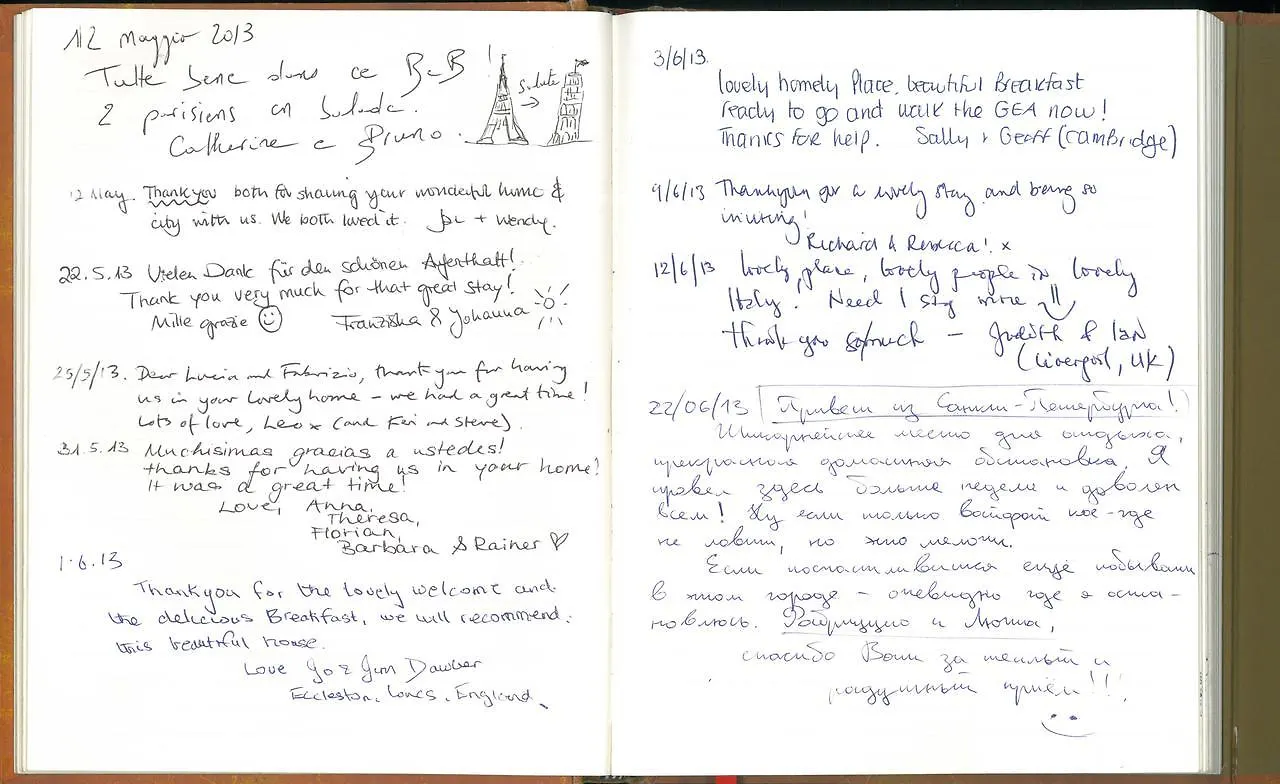 12 Maggio 2013
Tutte bene dans ce B&B !
2 parisiens en balade.
Catherine e Bruno.
Salute
12 May. Thankyou both for sharing your wonderful home &
city with us. We both loved it. Joi + Wendy.
22.5.13 Vielen Dank für den schönen Aufenthalt!
Thank you very much for that great stay!
Mille grazie Franziska & Johanna
25/5/13. Dear Lucia and Fabrizio, thank you for having
us in your lovely home – we had a great time!
Lots of love, Leo x (and Keri and Steve).
31.5.13 Muchisimas gracias a ustedes!
thanks for having us in your home!
It was a great time!
Love, Anna,
Theresa,
Florian,
Barbara & Rainer ♡
1.6.13
Thankyou for the lovely welcome and
the delicious Breakfast, we will recommend
this beautiful house.
Love Jo & Jim Dawber
Eccleston, Lancs, England.
3/6/13.
Lovely homely Place, beautiful Breakfast
ready to go and walk the GEA now!
Thanks for help. Sally + Geoff (Cambridge)
9/6/13 Thankyou for a lovely stay and being so
inviting!
Richard & Rebecca! x
12/6/13 Lovely place, lovely people in lovely
Italy. Need I say more
thank you so much – Judith & Ian
(Liverpool, UK)
22/06/13 Привет из Санкт-Петербурга!
Шикарнейшее место для отдыха,
прекрасная домашняя обстановка. Я
провел здесь больше недели и доволен
всем! Ну если только вайфай кое-где
не ловит, но это мелочи.
Если посчастливится ещё побывать
в этом городе – очевидно где я оста-
новлюсь. Фабрицио и Лючия,
спасибо Вам за теплый и
радушный приём!!!